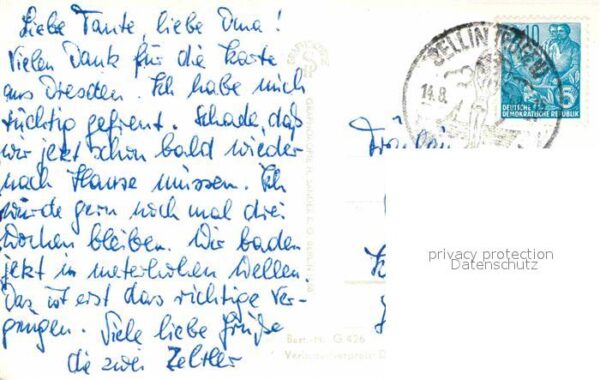 Liebe Tante, liebe Oma!
Vielen Dank für die Karte
aus Dresden. Ich habe mich
tüchtig gefreut. Schade, daß
wir jetzt schon bald wieder
nach Hause müssen. Ich
würde gern noch mal drei
Wochen bleiben. Wir baden
jetzt in meterhohen Wellen.
Das ist erst das richtige Ver-
gnügen. Viele liebe Grüße
die zwei Zeltler
SELLIN (RÜGEN)
14.8.
10
5
DEUTSCHE
DEMOKRATISCHE REPUBLIK
privacy protection
Datenschutz
Best.-Nr. G 426